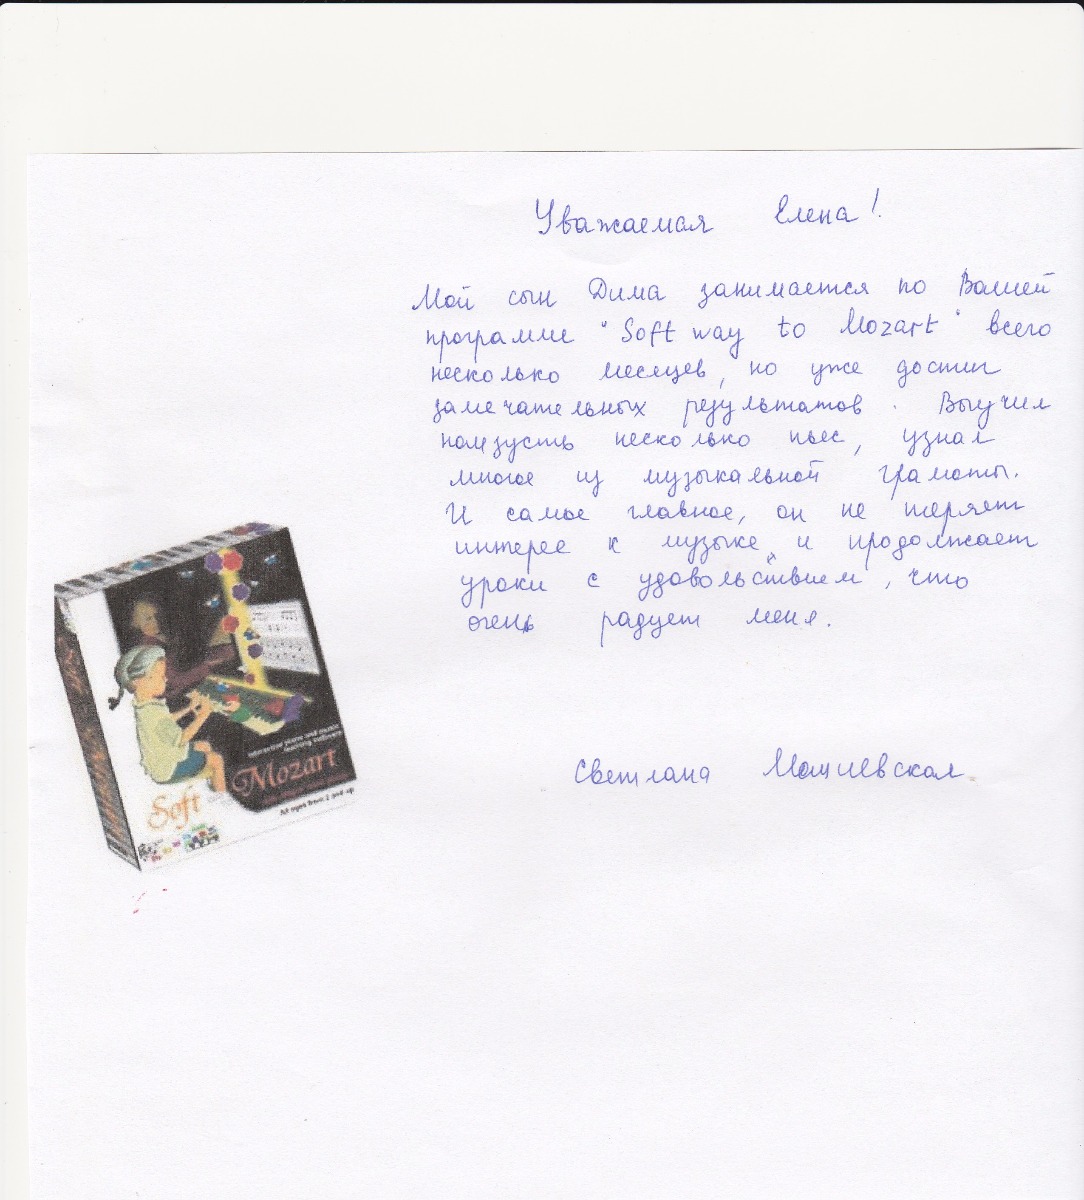 Уважаемая Елена!
Мой сын Дима занимается по Вашей
программе "Soft way to Mozart" всего
несколько месяцев, но уже достиг
замечательных результатов. Выучил
наизусть несколько пьес, узнал
многое из музыкальной грамоты.
И самое главное, он не теряет
интерес к музыке и продолжает
уроки с удовольствием, что
очень радует меня.
interactive piano and music
teaching software
Mozart
Soft
All ages from 2 and up
Светлана